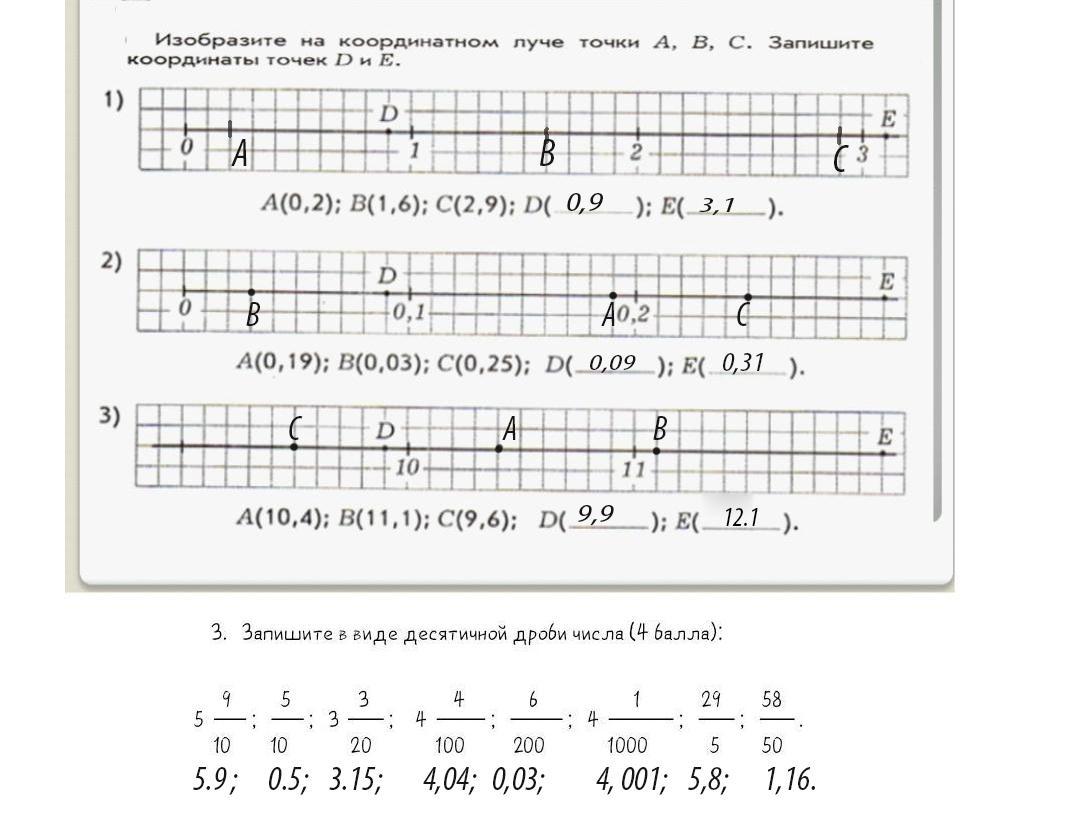 Изобразите на координатном луче точки A, B, C. Запишите
координаты точек D и E.
1)
D E
0 A 1 B 2 C 3
A(0,2); B(1,6); C(2,9); D( 0,9 ); E( 3,1 ).
2)
D E
0 B 0,1 A 0,2 C
A(0,19); B(0,03); C(0,25); D( 0,09 ); E( 0,31 ).
3)
C D A B E
10 11
A(10,4); B(11,1); C(9,6); D( 9,9 ); E( 12.1 ).
3. Запишите в виде десятичной дроби числа (4 балла):
5 9/10; 5/10; 3 3/20; 4 4/100; 6/200; 4 1/1000; 29/5; 58/50.
5.9; 0.5; 3.15; 4,04; 0,03; 4, 001; 5,8; 1,16.